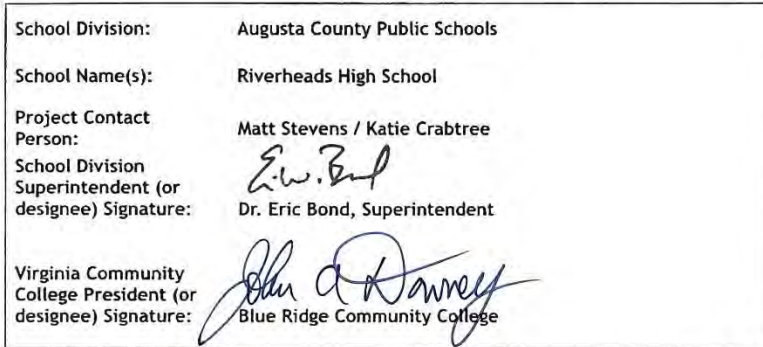 School Division: Augusta County Public Schools
School Name(s): Riverheads High School
Project Contact
Person: Matt Stevens / Katie Crabtree
School Division
Superintendent (or
designee) Signature: E.W. Bond
Dr. Eric Bond, Superintendent
Virginia Community
College President (or
designee) Signature: John A Downey
Blue Ridge Community College